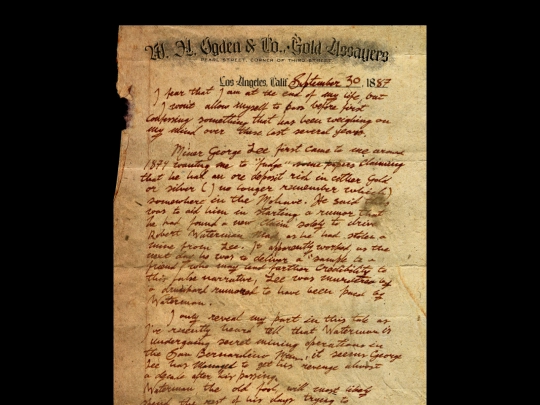 W. A. Ogden & Co., Gold Assayers
PEARL STREET, CORNER OF THIRD STREET
Los Angeles, Calif. September 30, 1887
I fear that I am at the end of my life, but
I won't allow myself to pass before first
confessing something that has been weighing on
my mind over these last several years.
Miner George Lee first came to me around
1879 wanting me to "fudge" some papers claiming
that he had an ore deposit rich in either Gold
or silver (I no longer remember which)
somewhere in the Mohave. He said this
was to aid him in starting a rumor that
he had found a new claim solely to drive
Robert Waterman mad, as he had stolen a
mine from Lee. It apparently worked as the
next day he was to deliver a "sample to a
friend" who may lend further credibility to
this false narrative, Lee was murdered by
a drunkard rumored to have been paid by
Waterman.
I only reveal my part in this tale as
I've recently heard tell that Waterman is
undergoing secret mining operations in
the San Bernardino Mtns; it seems George
Lee has managed to get his revenge almost
a decade after his passing.
Waterman the old fool, will most likely
spend the rest of his days trying to